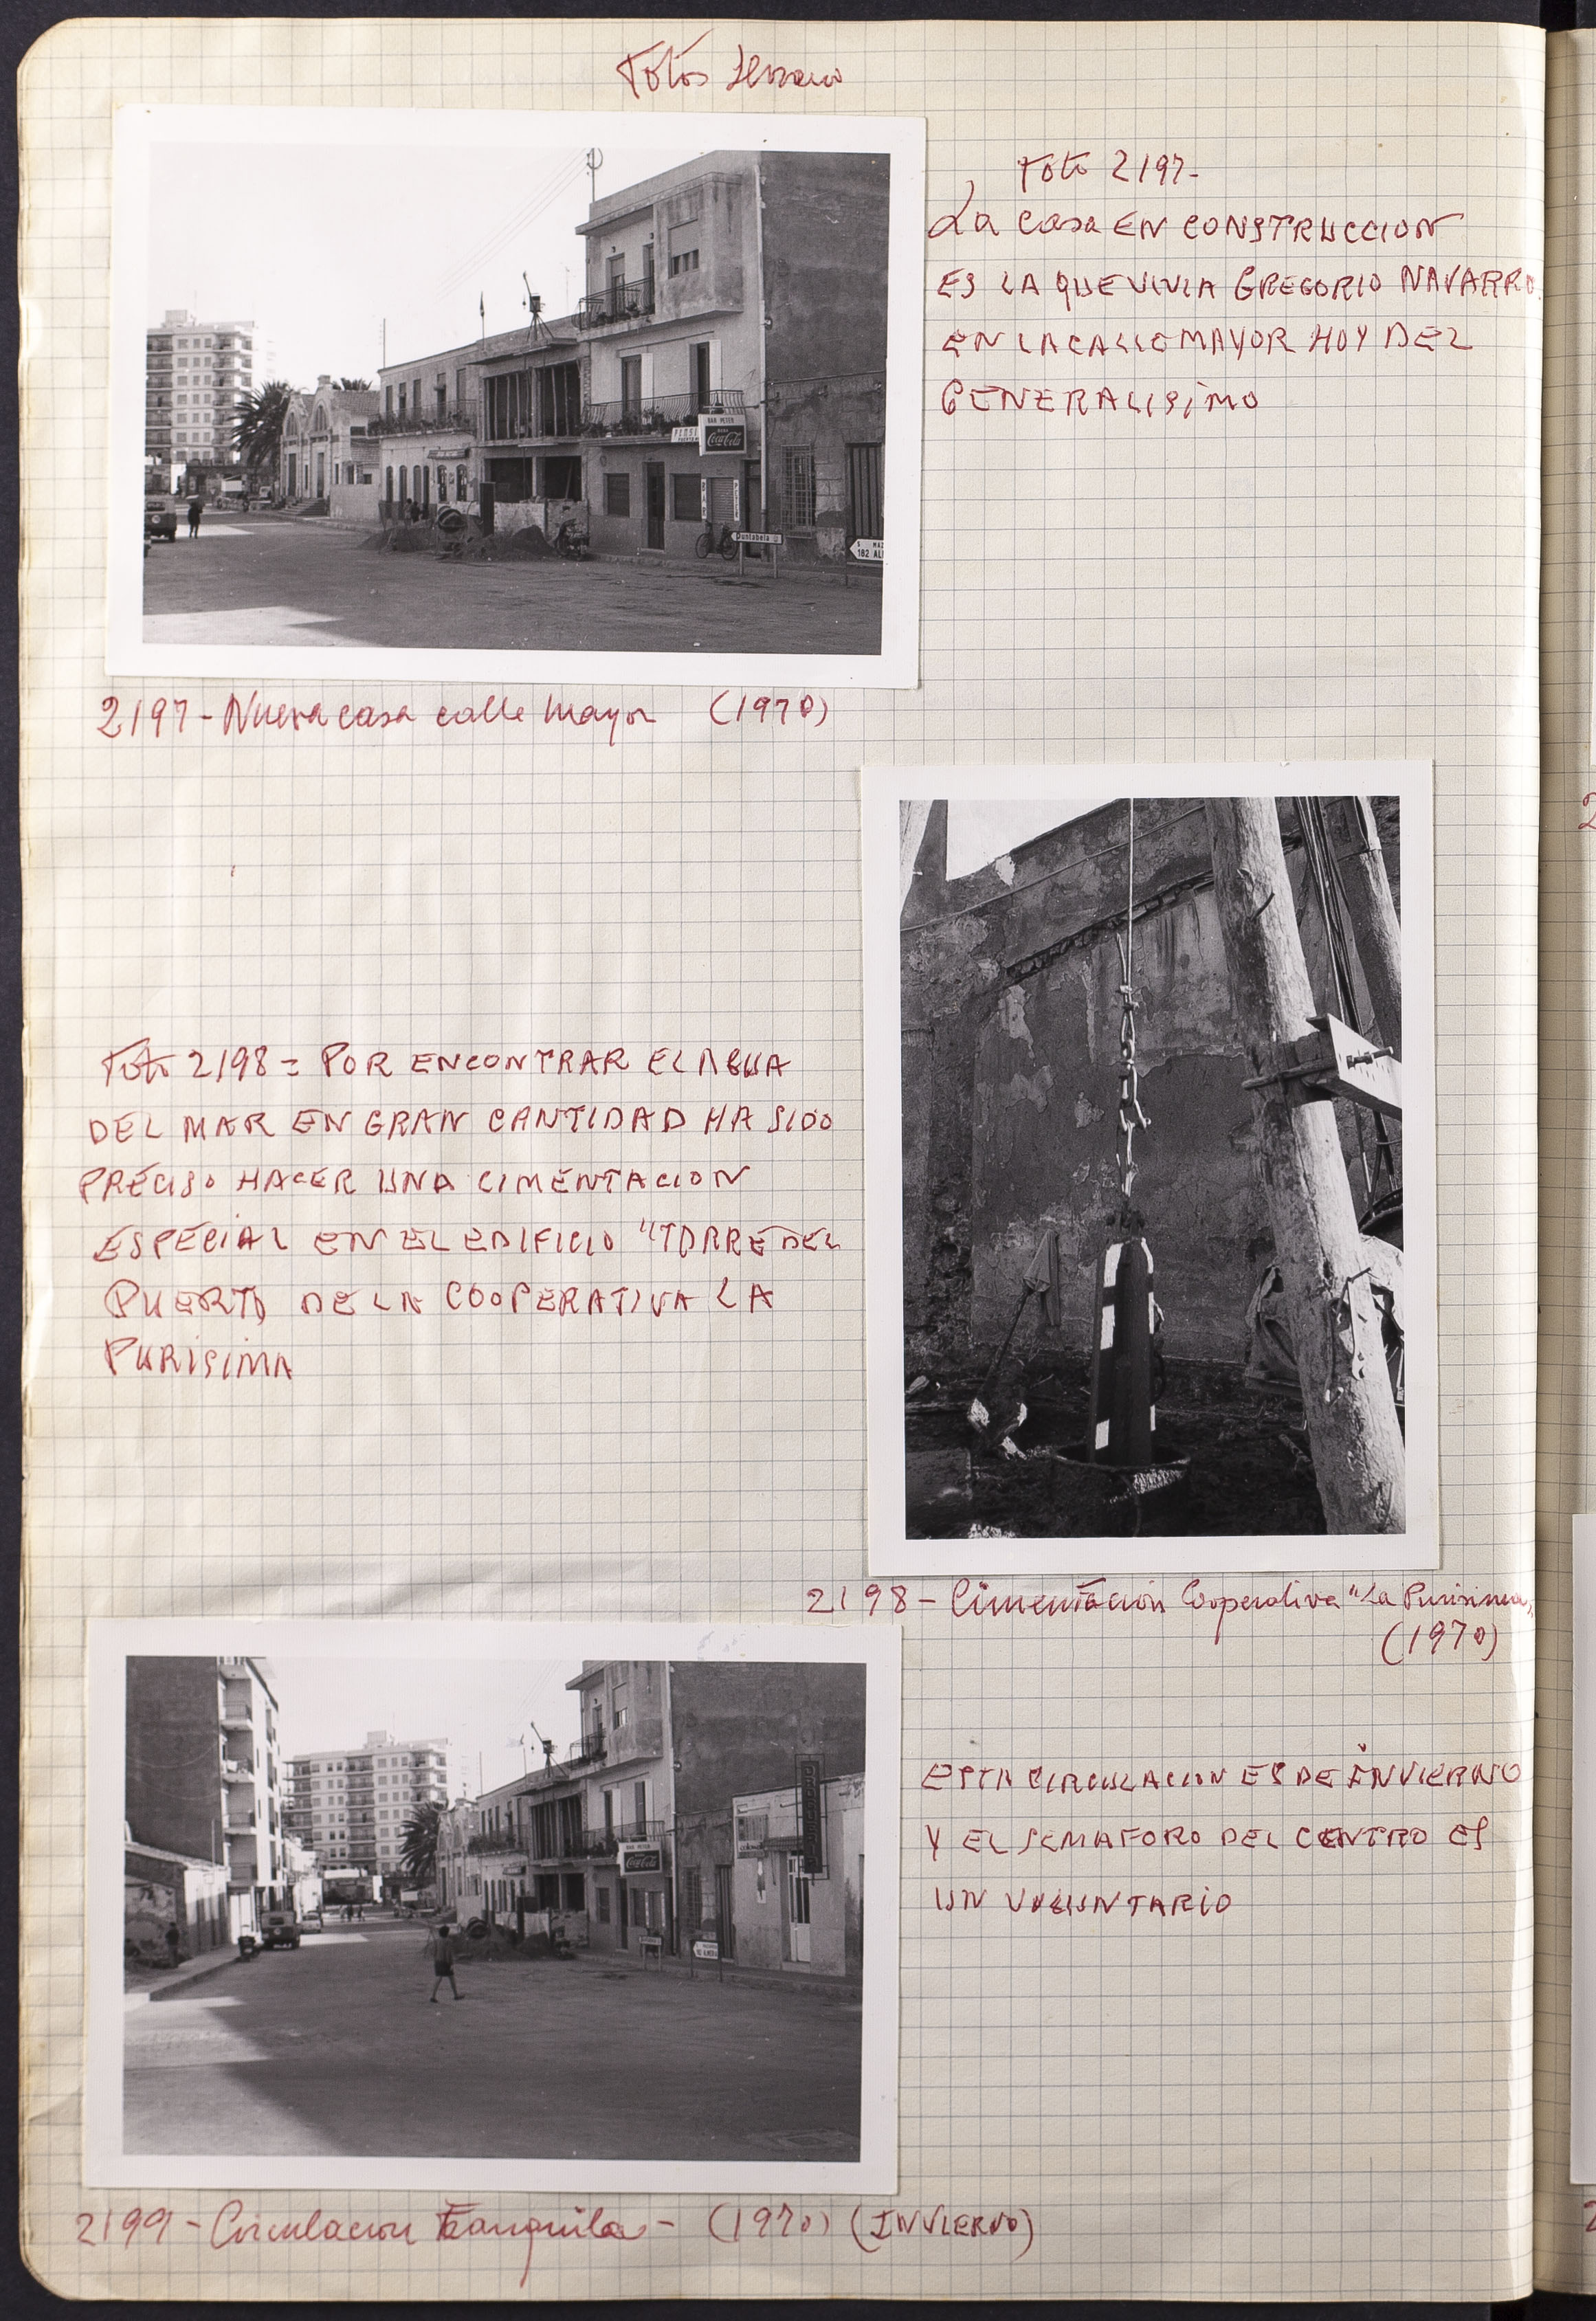 Fotos Serrano
Foto 2197-
La casa EN CONSTRUCCION
ES LA QUE VIVIA GREGORIO NAVARRO
EN LA CALLE MAYOR HOY DEL
GENERALISIMO
BAR PETER
Coca-Cola
PENSI
BAR
PETER
Puntabela
182 AL
2197-Nueva casa calle mayor (1970)
Foto 2198 = POR ENCONTRAR EL AGUA
DEL MAR EN GRAN CANTIDAD HA SIDO
PRECISO HACER UNA CIMENTACION
ESPECIAL EN EL EDIFICIO "TORRE DEL
PUERTO DE LA COOPERATIVA LA
PURISIMA
2198-Cimentación Cooperativa "La Purisima"
(1970)
ESTA CIRCULACION ES DE INVIERNO
Y EL SEMAFORO DEL CENTRO ES
UN VOLUNTARIO
BAR PETER
Coca-Cola
2199-Circulacion Tranquila- (1970) (INVIERNO)